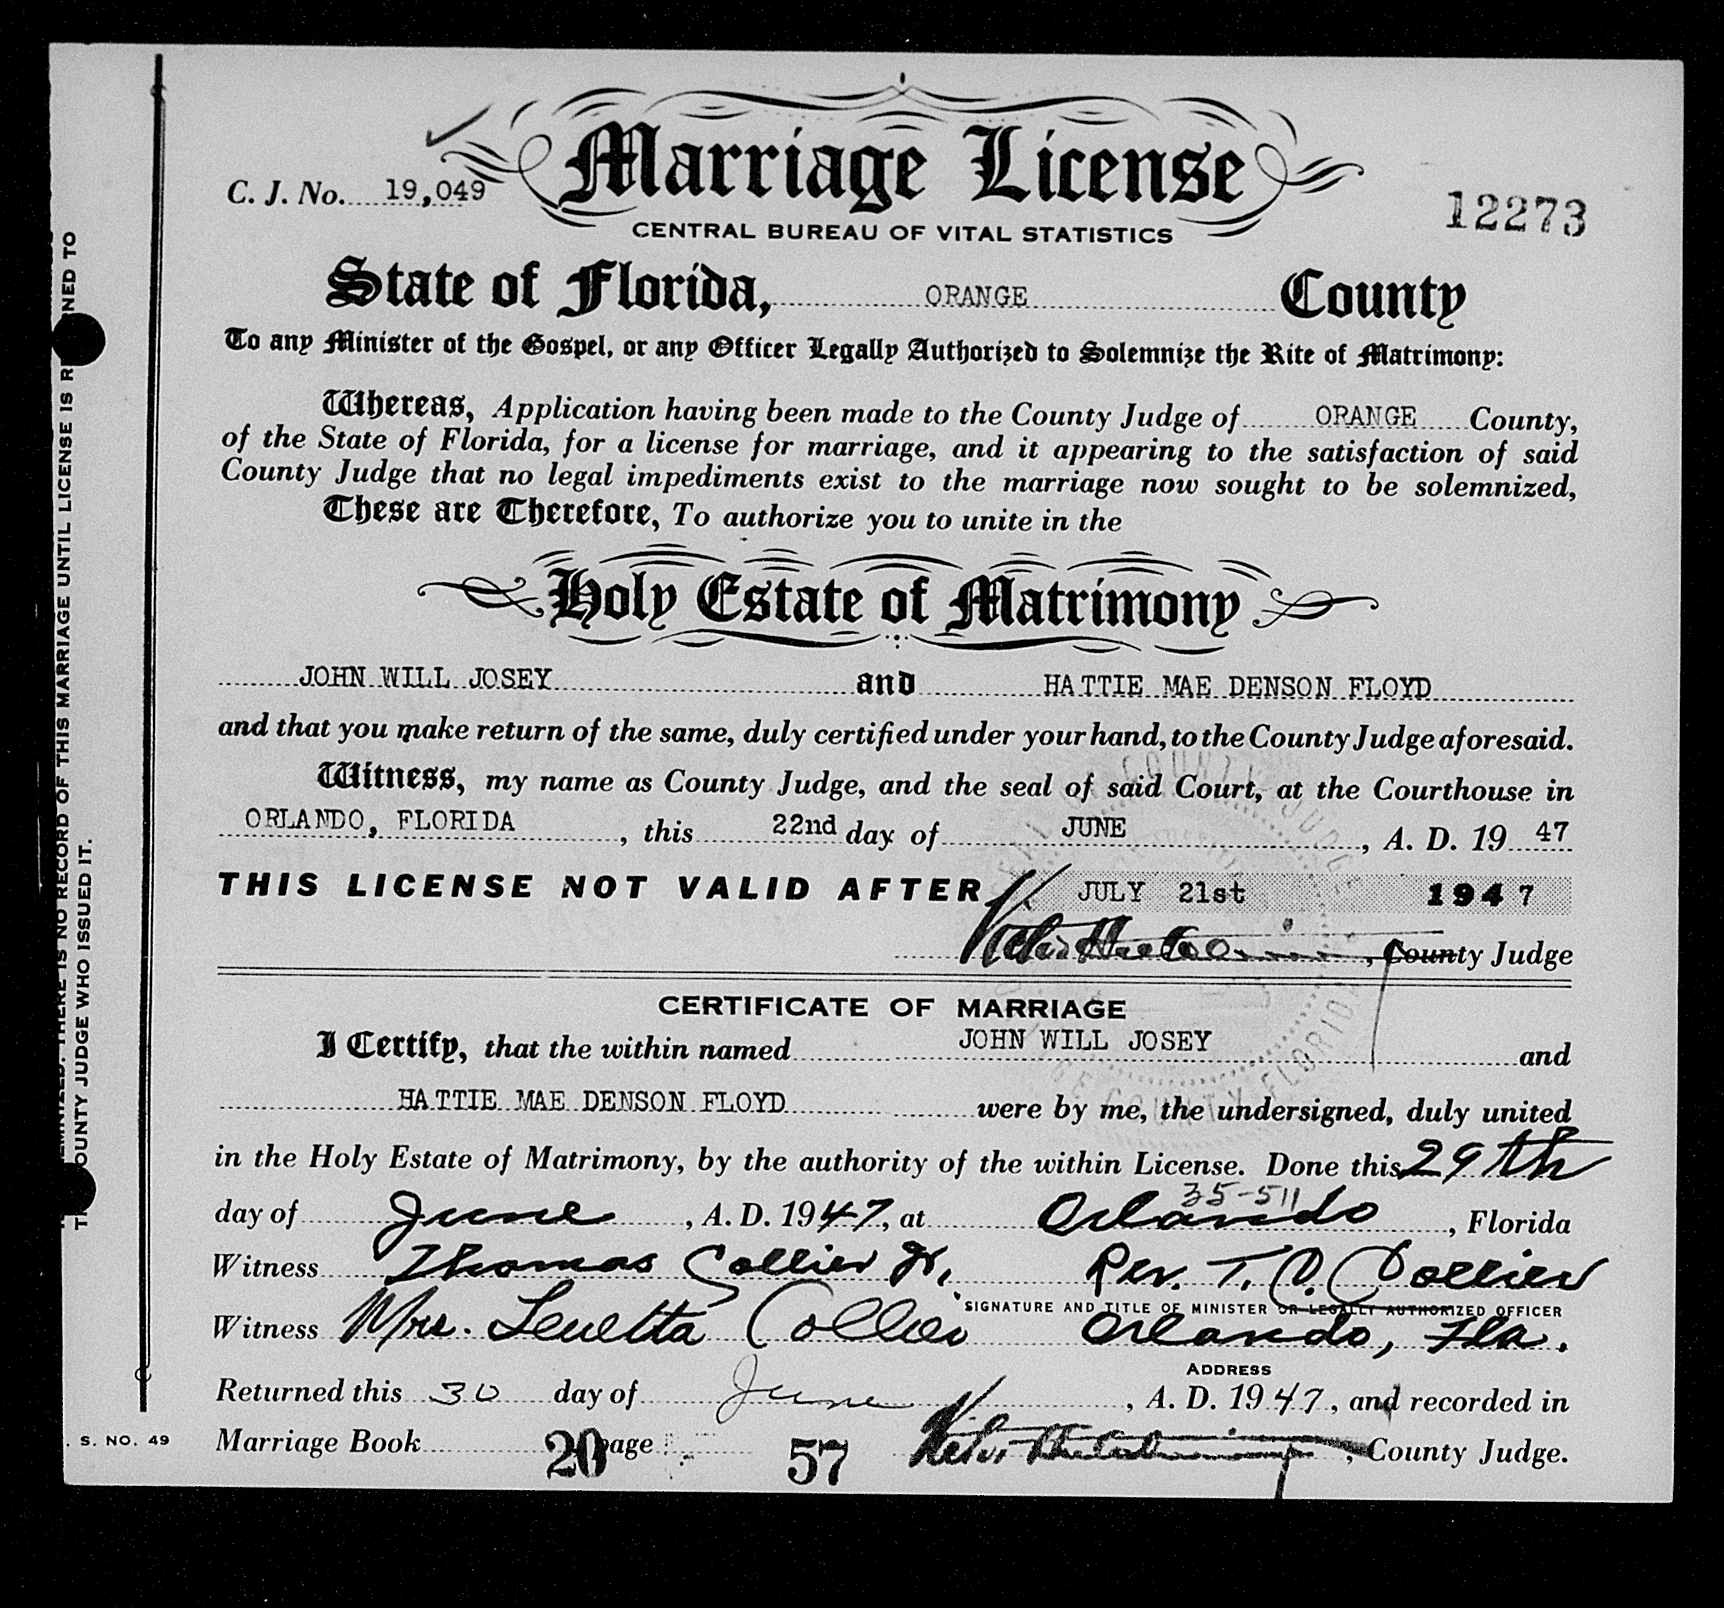 Marriage License
C. J. No. 19,049
12273
CENTRAL BUREAU OF VITAL STATISTICS
State of Florida, ORANGE County
To any Minister of the Gospel, or any Officer Legally Authorized to Solemnize the Rite of Matrimony:
Whereas, Application having been made to the County Judge of ORANGE County,
of the State of Florida, for a license for marriage, and it appearing to the satisfaction of said
County Judge that no legal impediments exist to the marriage now sought to be solemnized,
These are Therefore, To authorize you to unite in the
Holy Estate of Matrimony
JOHN WILL JOSEY and HATTIE MAE DENSON FLOYD
and that you make return of the same, duly certified under your hand, to the County Judge aforesaid.
Witness, my name as County Judge, and the seal of said Court, at the Courthouse in
ORLANDO, FLORIDA, this 22nd day of JUNE, A. D. 19 47
THIS LICENSE NOT VALID AFTER JULY 21st 1947
, County Judge
CERTIFICATE OF MARRIAGE
I Certify, that the within named JOHN WILL JOSEY and
HATTIE MAE DENSON FLOYD were by me, the undersigned, duly united
in the Holy Estate of Matrimony, by the authority of the within License. Done this 29th
35-511
day of June, A. D. 1947, at Orlando, Florida
Witness Thomas Collier Jr. Rev. T. C. Collier
SIGNATURE AND TITLE OF MINISTER OR LEGALLY AUTHORIZED OFFICER
Witness Mrs. Collier Orlando, Fla.
ADDRESS
Returned this 30 day of June, A. D. 1947, and recorded in
Marriage Book 20 page 57 , County Judge.
. S. NO. 49
THERE IS NO RECORD OF THIS MARRIAGE UNTIL LICENSE IS R NED TO
OUNTY JUDGE WHO ISSUED IT.